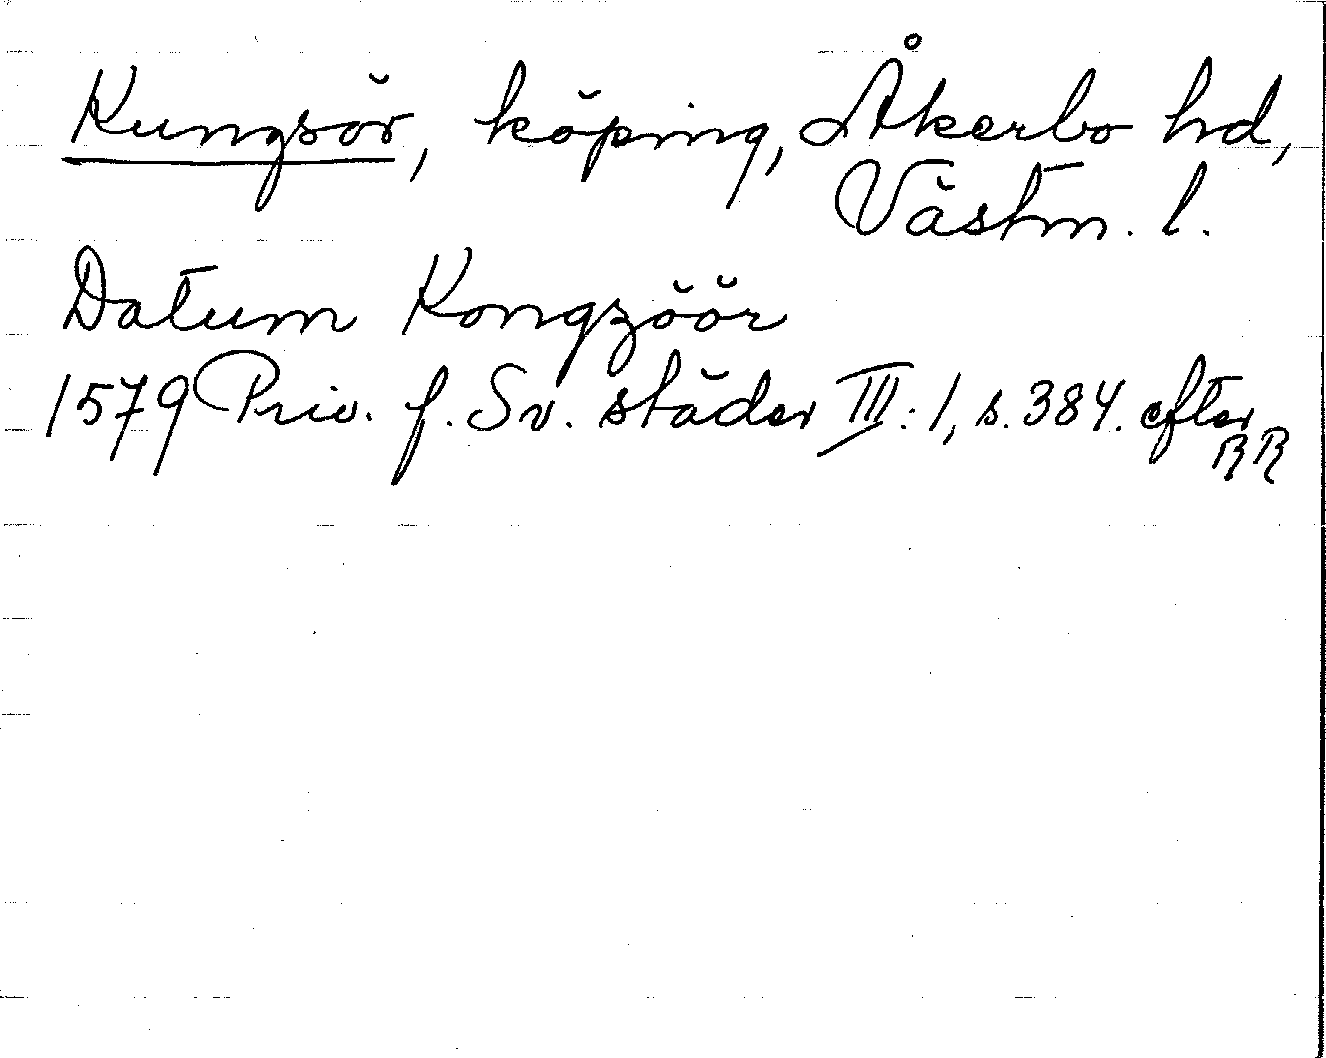 Kungsör, köping, Åkerbo hd,
Västm. l.
Datum Kongzöör
1579 Priv. f. Sv. städer III: 1, s. 384. efter
RR